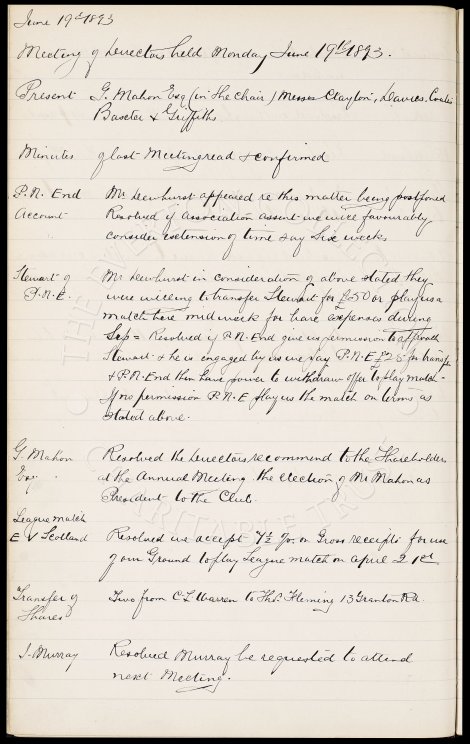 June 19th 1893
Meeting of Directors held Monday June 19th 1893.
Present G. Mahon Esq (in the chair) Messrs Clayton, Davies, Coates
Baxter & Griffiths
Minutes of last Meeting read & confirmed
P.N. End Mr Dewhurst appeared re this matter being postponed
Account Resolved if association assent we will favourably
consider extension of time say six weeks
Stewart of Mr Dewhurst in consideration of above stated they
P.N.E. were willing to transfer Stewart for £50 or play us a
match here midweek for bare expenses during
Sep = Resolved if P.N. End give us permission to approach
Stewart & he is engaged by us we pay P.N.E £25 for transfer
& P.N. End then have power to withdraw offer to play match -
If no permission P.N.E play us the match on terms as
stated above.
G. Mahon Resolved the Directors recommend to the Shareholders
Esq. at the Annual Meeting the election of Mr Mahon as
President to the Club.
League match
E V Scotland Resolved we accept 7½ % on Gross receipts for use
of our Ground to play League match on April 21st
Transfer of Two from C.L. Warren to Thos. Fleming 13 Granton Rd.
Shares
J. Murray Resolved Murray be requested to attend
next Meeting.
THE EVERTON
CHARITABLE TRUST